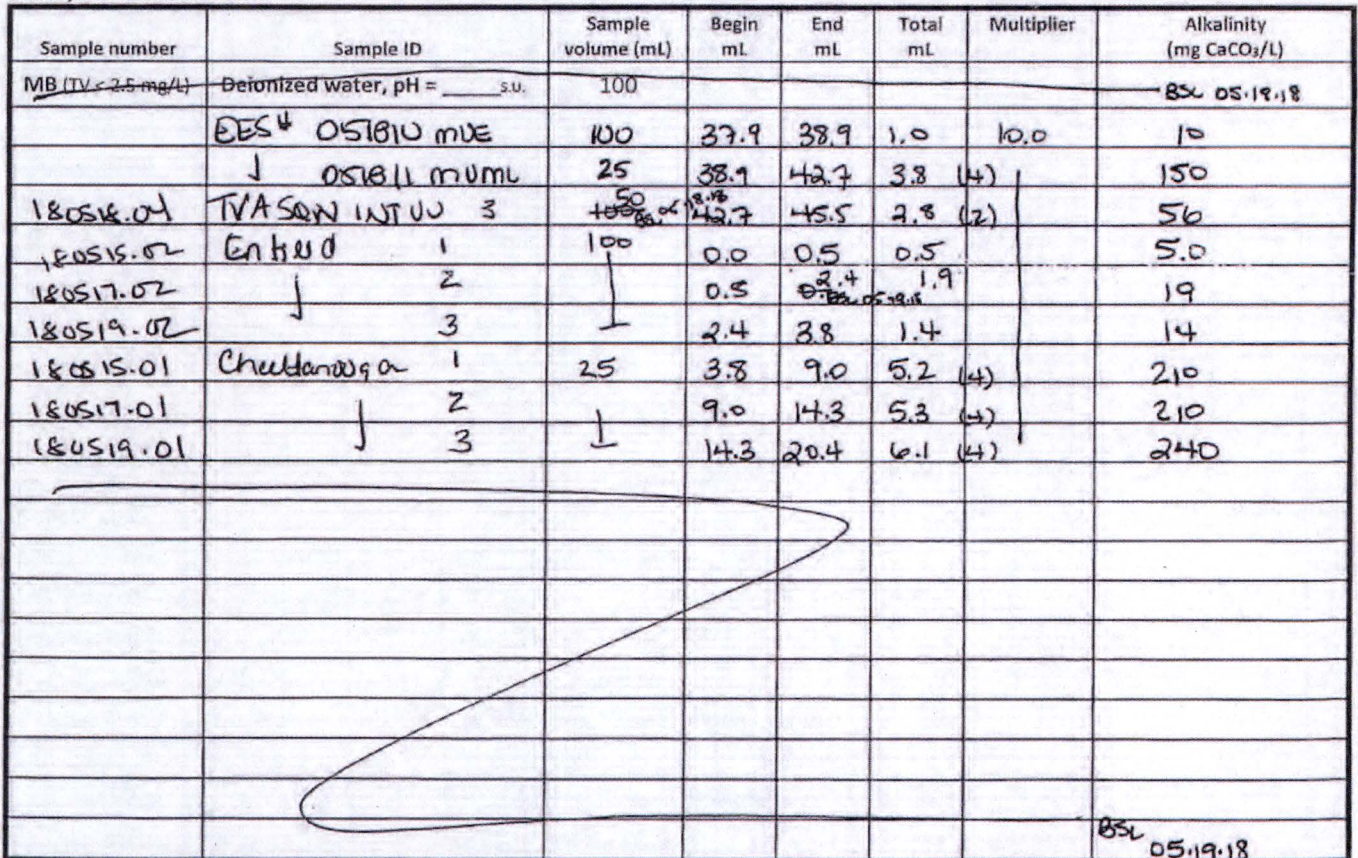 Sample number Sample ID Sample volume (mL) Begin mL End mL Total mL Multiplier Alkalinity (mg CaCO₃/L)
MB (TV < 2.5 mg/L) Deionized water, pH = _____ s.u. 100 BSL 05.19.18
051810 100 37.9 38.9 1.0 10.0 10
051811 25 38.9 42.7 3.8 (4) 150
180518.04 TVA SQN INTUU 3 100 50 BSL 42.7 45.5 2.8 (2) 56
180515.02 1 100 0.0 0.5 0.5 5.0
180517.02 2 0.5 2.4 BSL 05.19.18 1.9 19
180519.02 3 2.4 3.8 1.4 14
180515.01 Chattanooga 1 25 3.8 9.0 5.2 (4) 210
180517.01 2 9.0 14.3 5.3 (4) 210
180519.01 3 14.3 20.4 6.1 (4) 240
BSL
05.19.18